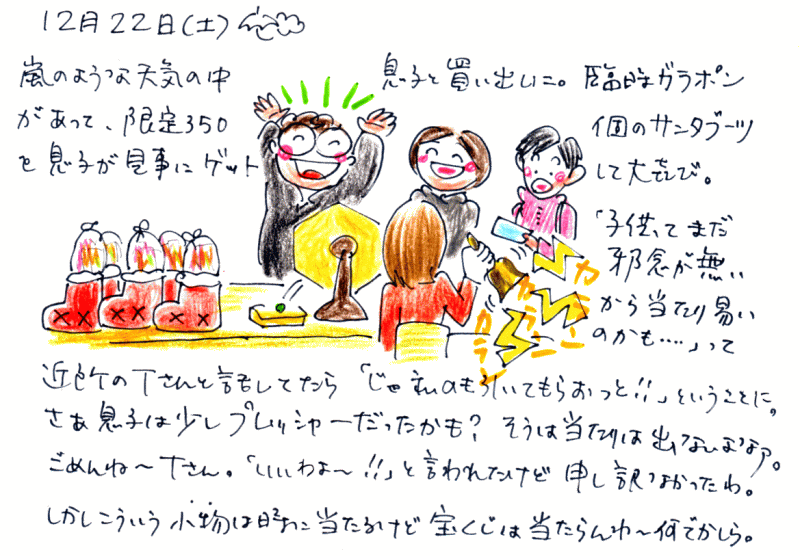 12月22日(土)
嵐のような天気の中 息子と買い出しに。臨時ガラポン
があって、限定350 個のサンタブーツ
を息子が見事にゲット して大喜び。
「子供ってまだ
邪念が無い
から当たり易い
のかも‥‥」って
カラン
カラーン
カラン
近所のTさんと話してたら「じゃあ私のも引いてもらおっと!!」ということに。
さあ息子は少しプレッシャーだったかも? そうは当たりは出ないよなァ。
ごめんね〜Tさん。「いいわよ〜!!」と言われたけど 申し訳なかったわ。
しかしこういう小物は時々当たるけど 宝くじは当たらんわ〜何でかしら。